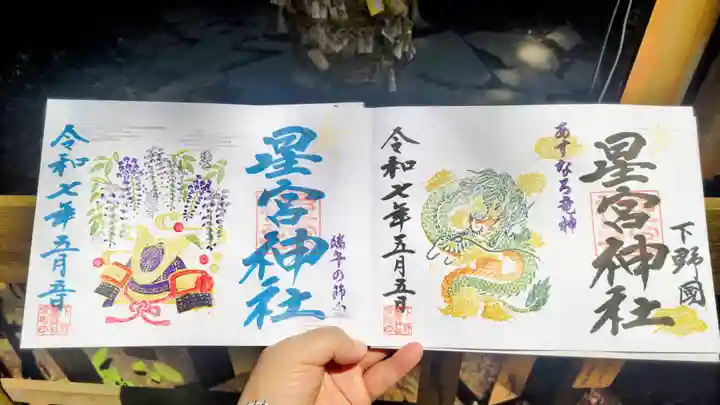 下野國
星宮神社
あすなろ竜神
令和七年五月五日
端午の節句
星宮神社
令和七年五月五日